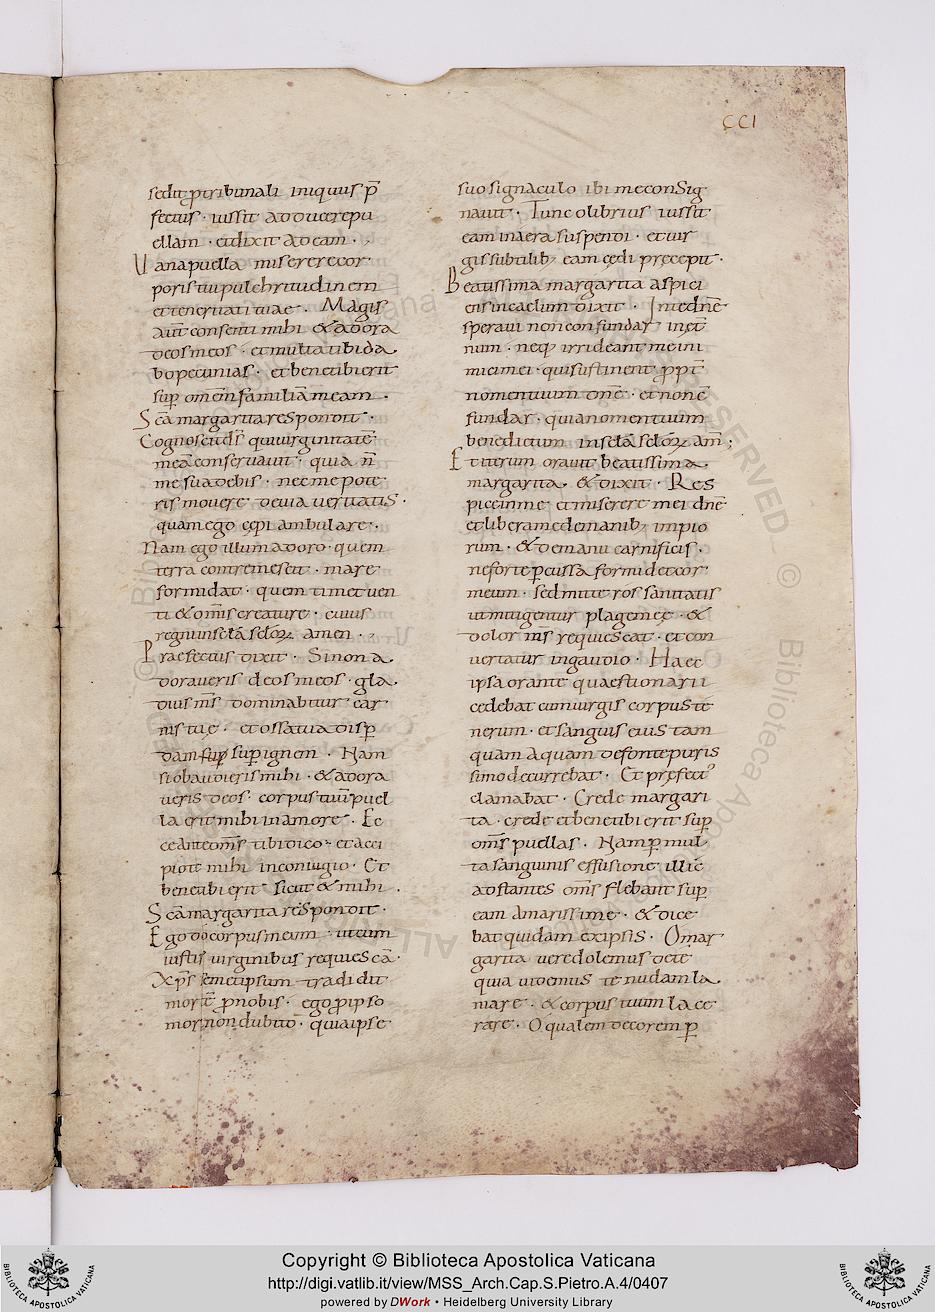 CCI
sedit p tribunali iniquus p̄
fectus · iussit adducere pu
ellam · et dixit ad eam ·
Vana puella miserere cor
poris tui pulchritudinem
et teneritati tuae · Magis
aut̄ consenti mihi & adora
deos meos · et multa tibi da
bo pecunias · et bene tibi erit
sup̄ omnē familiā meam ·
Scā margarita respondit ·
Cognoscit d̄s qui uirginitatē
meā conseruauit · quia n̄
me suadebis · nec me pote
ris mouere de uia ueritatis ·
quam ego cępi ambulare ·
Nam ego illum adoro · quem
terra contremescit · mare
formidat · quem timet uen
ti & om̄s creature · cuius
regnū in sc̄la sc̄lorꝝ amen ·
Praefectus dixit · Si non a
doraueris deos meos · gla
dius m̄s dominabitur car
nis tuę · et ossa tua disp̄
dam sup̄ ignem · Nam
si obaudieris mihi · & adora
ueris deos · corpus tuū puel
la erit mihi in amore · Ec
ce ante om̄s tibi dico · et acci
pio te mihi in coniugio · Et
bene tibi erit sicut & mihi ·
Scā margarita respondit ·
Ego do corpus meum · ut cum
iustis uirginibus requiescā ·
Xp̄s semetipsum tradidit
mortē p nobis · ego p ipso
mori non dubito · quia ipse
suo signaculo ibi me consig
nauit · Tunc olibrius iussit
eam in aera suspendi · et uir
gis subtilib; eam cędi pręcepit ·
Beatissima margarita aspici
ens in caelum dixit · In te dn̄e
speraui non confundar in et̄
num · neq; irrideant me ini
mici mei · qui sustinent ppt̄
nomen tuum dn̄e · et non c̄
fundar · quia nomen tuum
benedictum in sc̄la sc̄lorꝝ am̄ ;
Et iterum orauit beatissima
margarita & dixit · Res
pice in me et miserere mei dn̄e
et libera me de manib; impio
rum · & de manu carnificis ·
ne forte pcussa formidet cor
meum · sed mitte ros sanitatis
ut mitigentur plage meę · &
dolor m̄s requiescat · et con
uertatur in gaudio · Haec
ipsa orante quaestionarii
cedebat cum uirgis corpus te
nerum · et sanguis eius tam
quam aqua de fonte puris
simo decurrebat · Et pręfect'
clamabat · Crede margari
ta · crede et bene tibi erit sup̄
om̄s puellas · Nam p mul
ta sanguinis effusione illic
adstantes om̄s flebant sup̄
eam amarissime · & dice
bat quidam ex ipsis · O mar
garita uere dolemus de te
quia uidemus te nudam la
niare · & corpus tuum lace
rare · O qualem decorem p
Copyright © Biblioteca Apostolica Vaticana
http://digi.vatlib.it/view/MSS_Arch.Cap.S.Pietro.A.4/0407
powered by DWork • Heidelberg University Library